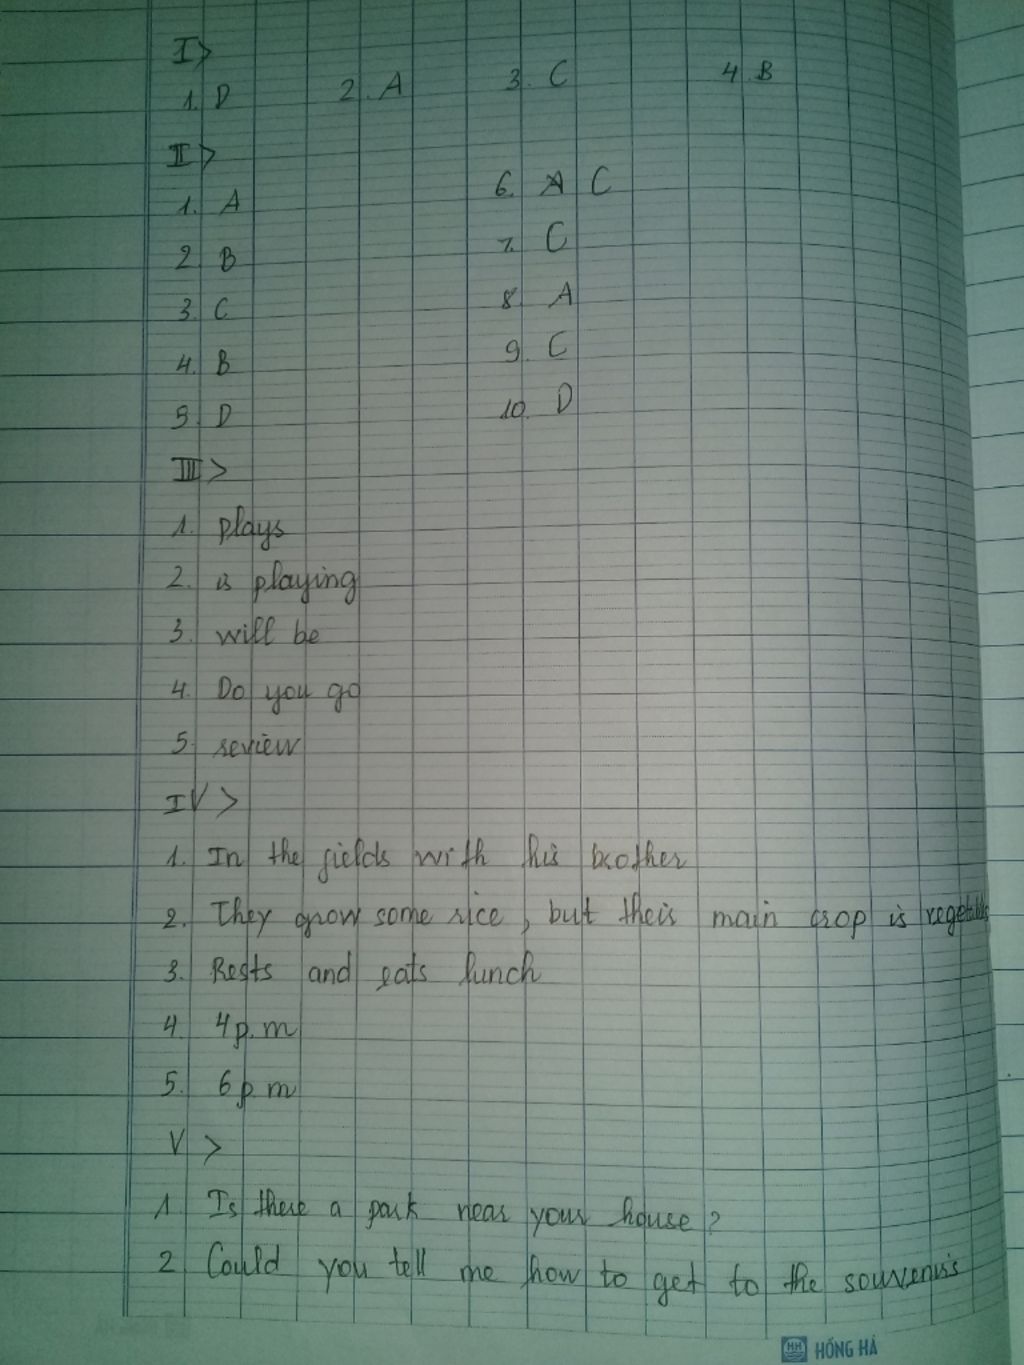 I>
1. D 2. A 3. C 4. B
II>
1. A 6. A C
2. B 7. C
3. C 8. A
4. B 9. C
5. D 10. D
III>
1. plays
2. is playing
3. will be
4. Do you go
5. review
IV>
1. In the fields with his brother
2. They grow some rice, but their main crop is vegetables
3. Rests and eats lunch
4. 4 p.m
5. 6 p.m
V>
1 Is there a park near your house?
2 Could you tell me how to get to the souvenir's
HH HỒNG HÀ